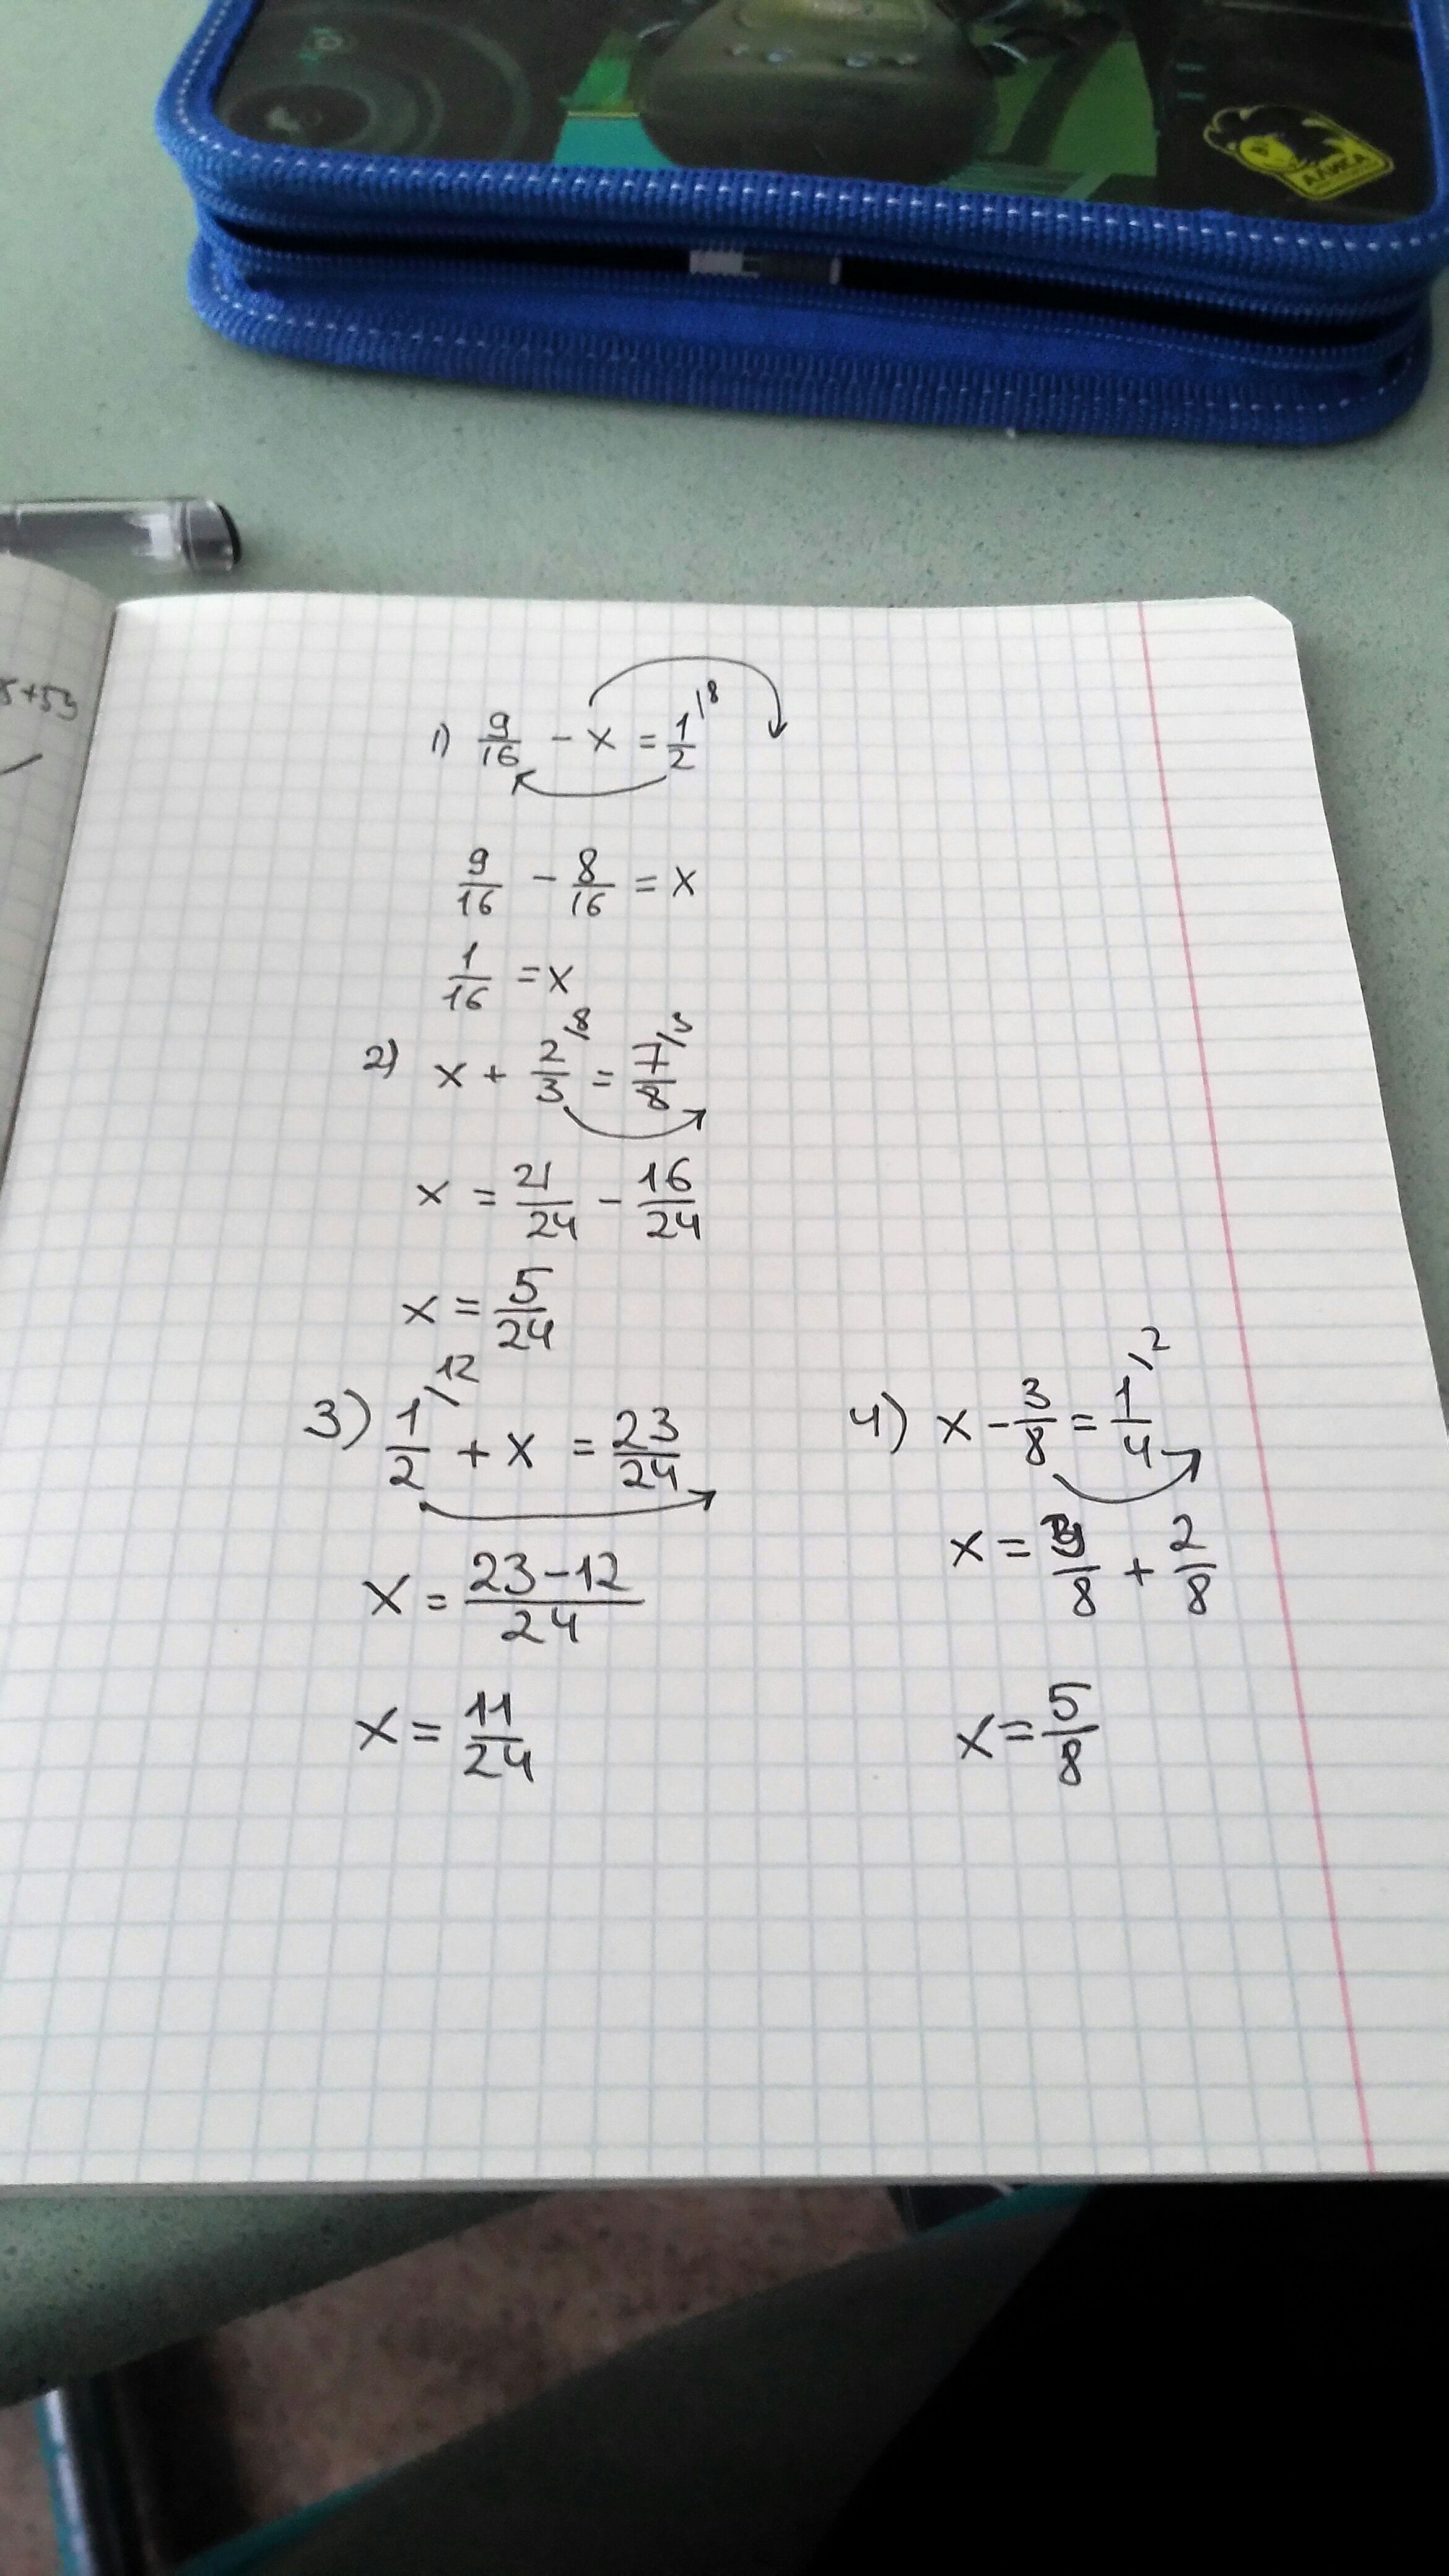 АЛИСА
x+53
1) 9/16 - x = 1/2 \8
9/16 - 8/16 = x
1/16 = x
2) x + 2/3 \8 = 7/8 \3
x = 21/24 - 16/24
x = 5/24
3) 1/2 \12 + x = 23/24
x = 23-12/24
x = 11/24
4) x - 3/8 = 1/4 \2
x = 3/8 + 2/8
x = 5/8